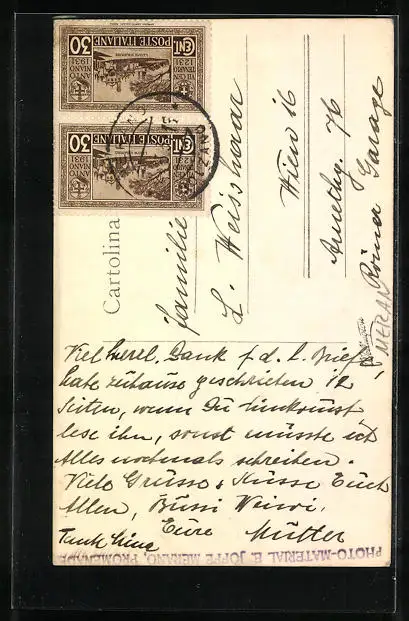 CENT. 30
POSTE ITALIANE
VII CENTENARIO ANTONIANO
1231 1931
CENT. 30
POSTE ITALIANE
1231 1931
Cartolina
Familie
L. Weisshaar
Wien 16
Arnethg. 76
Roma Garage
MERAN
Viel herzl. Dank f. d. l. Brief,
habe zuhause geschrieben 12
Seiten, wenn Du hinkomst
lese ihn, sonst müsste ich
Alles nochmals schreiben.
Viele Grüsse & Küsse Euch
Allen, Bussi
Eure Mutter
Tante
PHOTO-MATERIAL E. JOFFE MERANO, PROMENADE